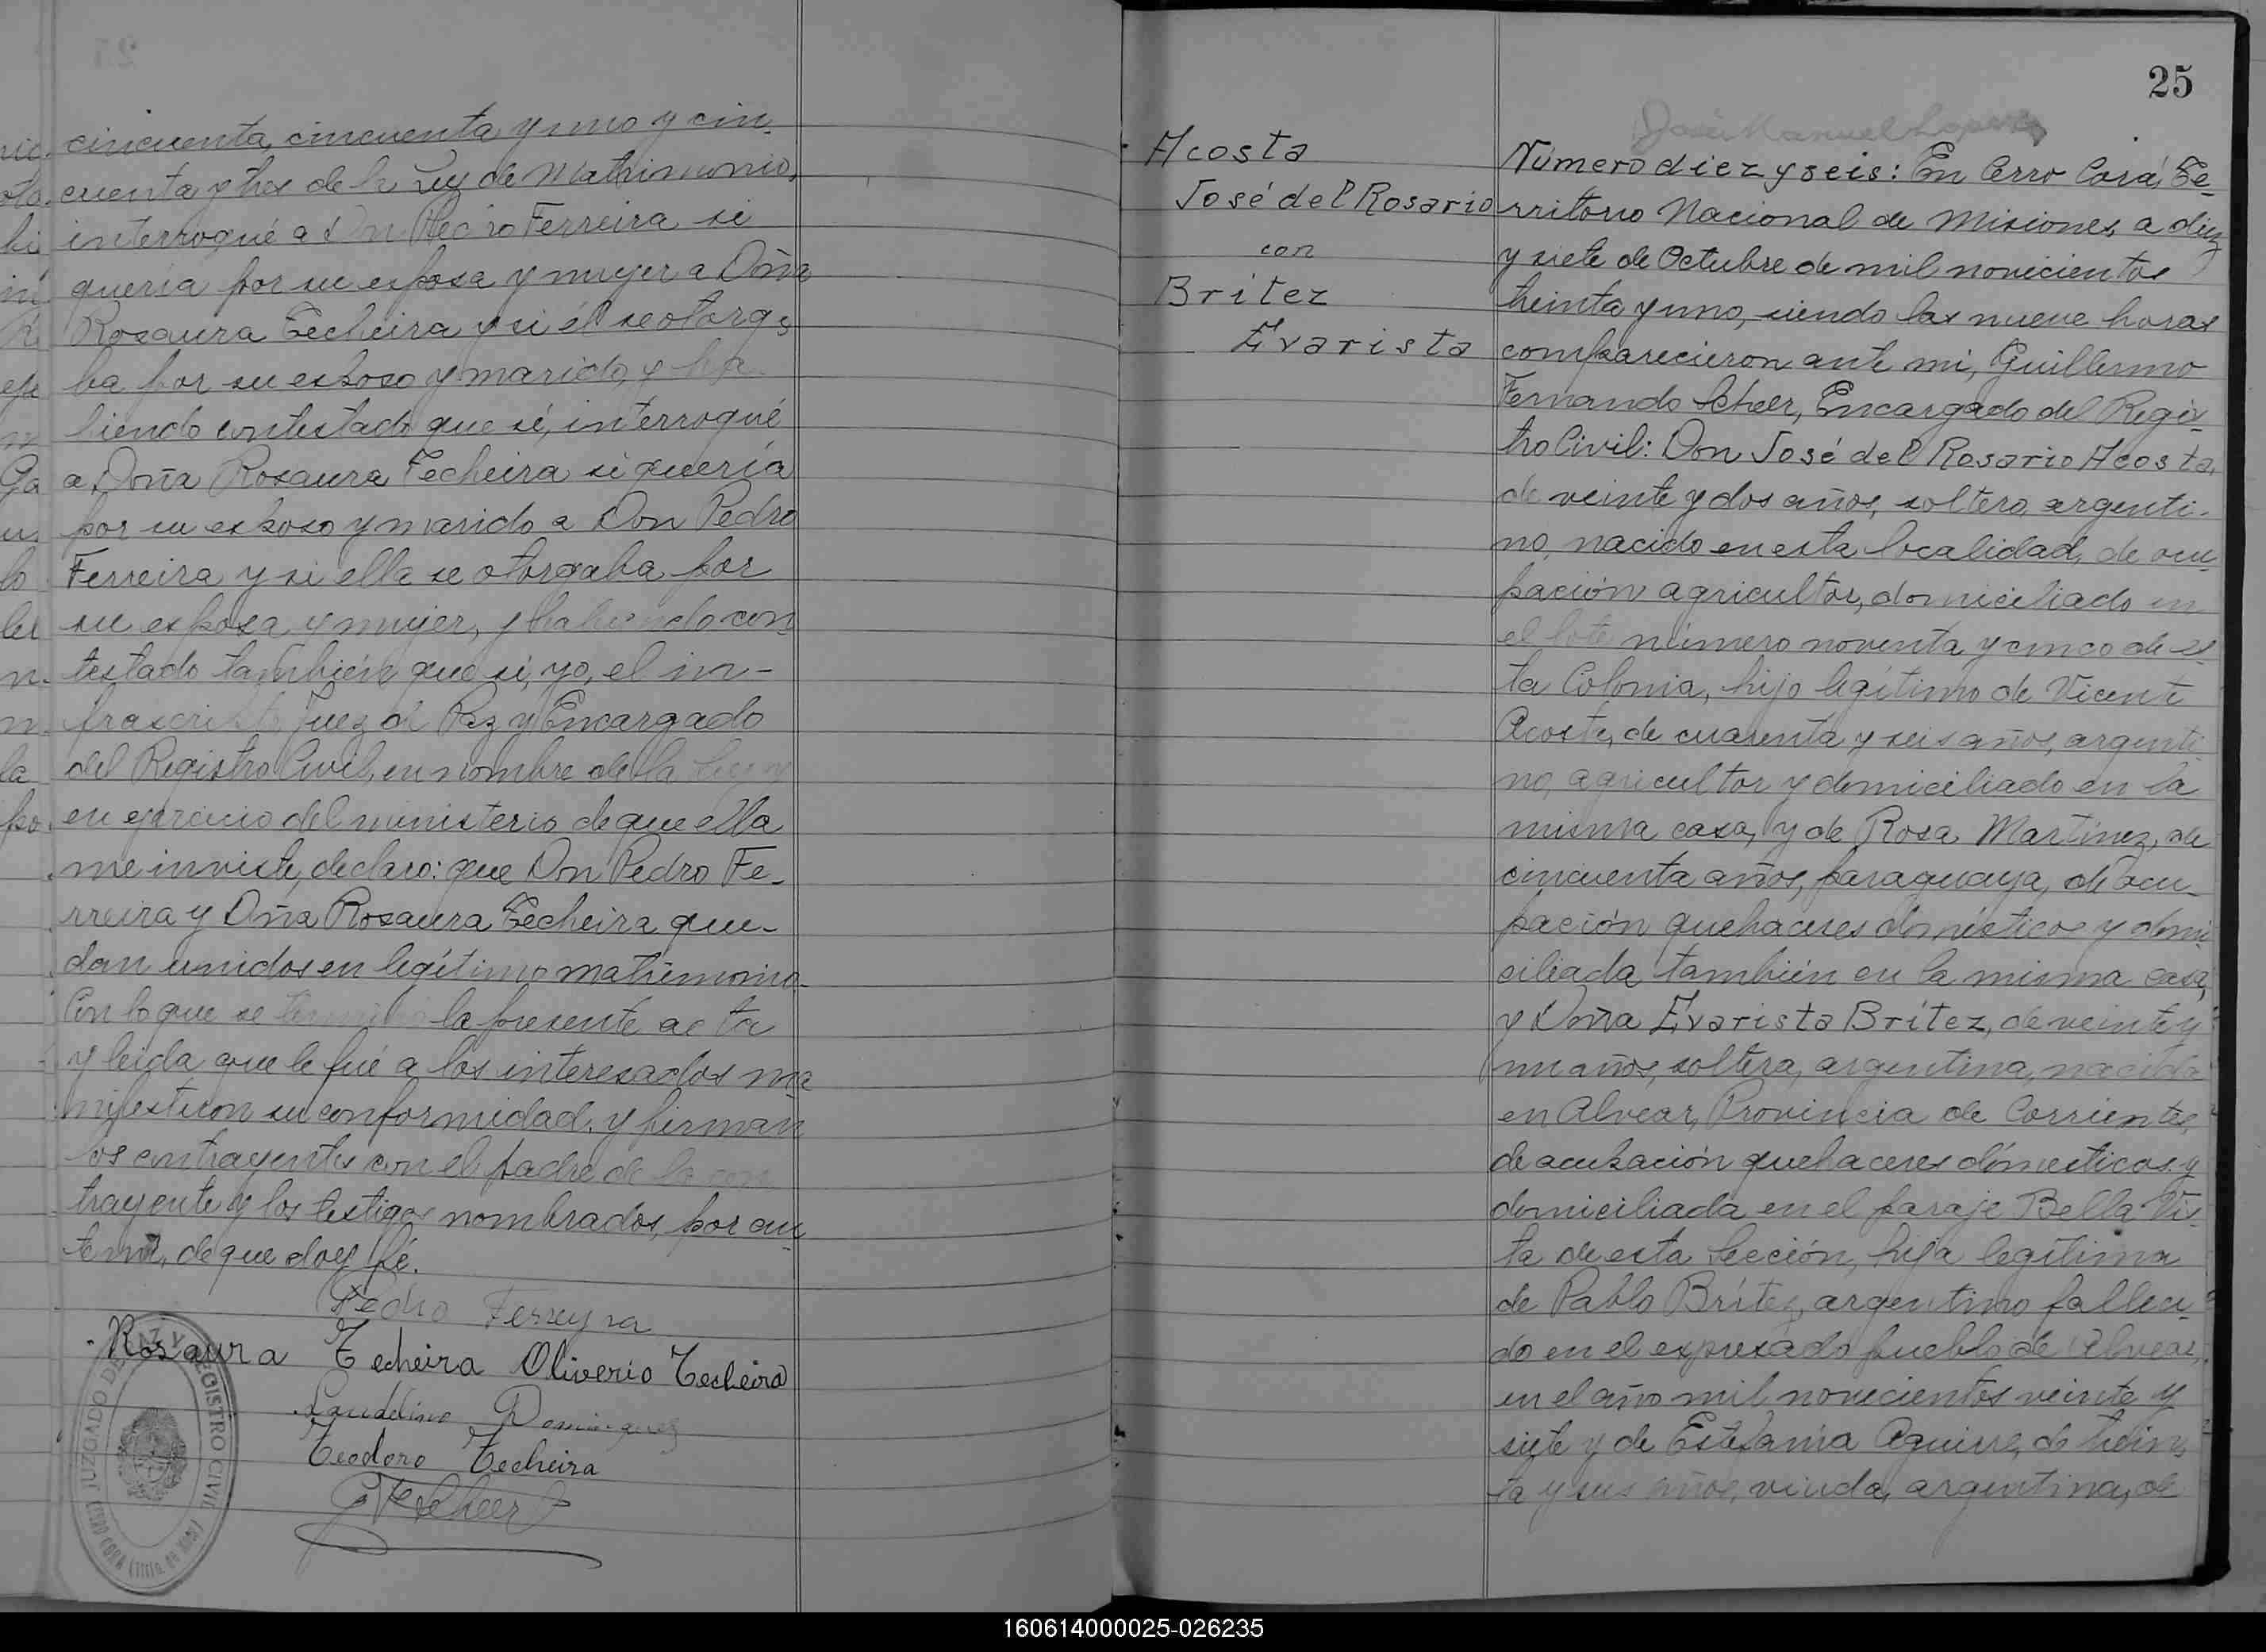 cincuenta, cincuenta y uno y cin-
cuenta y tres de la Ley de Matrimonio,
interrogué a Don Pedro Ferreira si
quería por su esposa y mujer a Doña
Rosaura Techeira y si él se otorga-
ba por su esposo y marido, y ha-
biendo contestado que sí, interrogué
a Doña Rosaura Techeira si quería
por su esposo y marido a Don Pedro
Ferreira y si ella se otorgaba por
su esposa y mujer, y habiendo con-
testado también que si, yo, el in-
frascripto Juez de Paz y Encargado
del Registro Civil, en nombre de la Ley y
en ejercicio del ministerio de que ella
me inviste, declaro: que Don Pedro Fe-
rreira y Doña Rosaura Techeira que-
dan unidos en legítimo matrimonio.
Con lo que se termina la presente acta
y leida que le fué a los interesados ma-
nifestaron su conformidad, y firman
los contrayentes con el padre de la con
trayente y los testigos nombrados, por an-
te mí, de que doy fé.
Pedro Ferreyra
Rosaura Techeira Oliverio Techeira
Dominguez
Teodoro Techeira
G F Scheer
JUZGADO DE PAZ Y REGISTRO CIVIL
25
José Manuel Lopez
Acosta
José del Rosario
con
Brítez
Evarista
Número diez y seis: En Cerro Corá, Te-
rritorio Nacional de Misiones, a diez
y siete de Octubre de mil novecientos
treinta y uno, siendo las nueve horas
comparecieron ante mi, Guillermo
Fernando Scheer, Encargado del Regis-
tro Civil: Don José del Rosario Acosta,
de veinte y dos años, soltero, argenti-
no, nacido en esta localidad, de ocu-
pación agricultor, domiciliado en
el lote número noventa y cinco de es-
ta Colonia, hijo legítimo de Vicente
Acosta, de cuarenta y seis años, argenti
no, agricultor y domiciliado en la
misma casa, y de Rosa Martínez, de
cincuenta años, paraguaya, de ocu-
pación quehaceres domésticos y domi
ciliada también en la misma casa,
y Doña Evarista Brítez, de veinte y
un años, soltera, argentina, nacida
en Alvear, Provincia de Corrientes,
de ocupación quehaceres domésticos y
domiciliada en el paraje Bella Vis-
ta de esta Sección, hija legítima
de Pablo Brítez, argentino falleci-
do en el expresado pueblo de Alvear,
en el año mil novecientos veinte y
siete y de Estefanía Aguirre, de trein-
ta y seis años, viuda, argentina, de
160614000025-026235